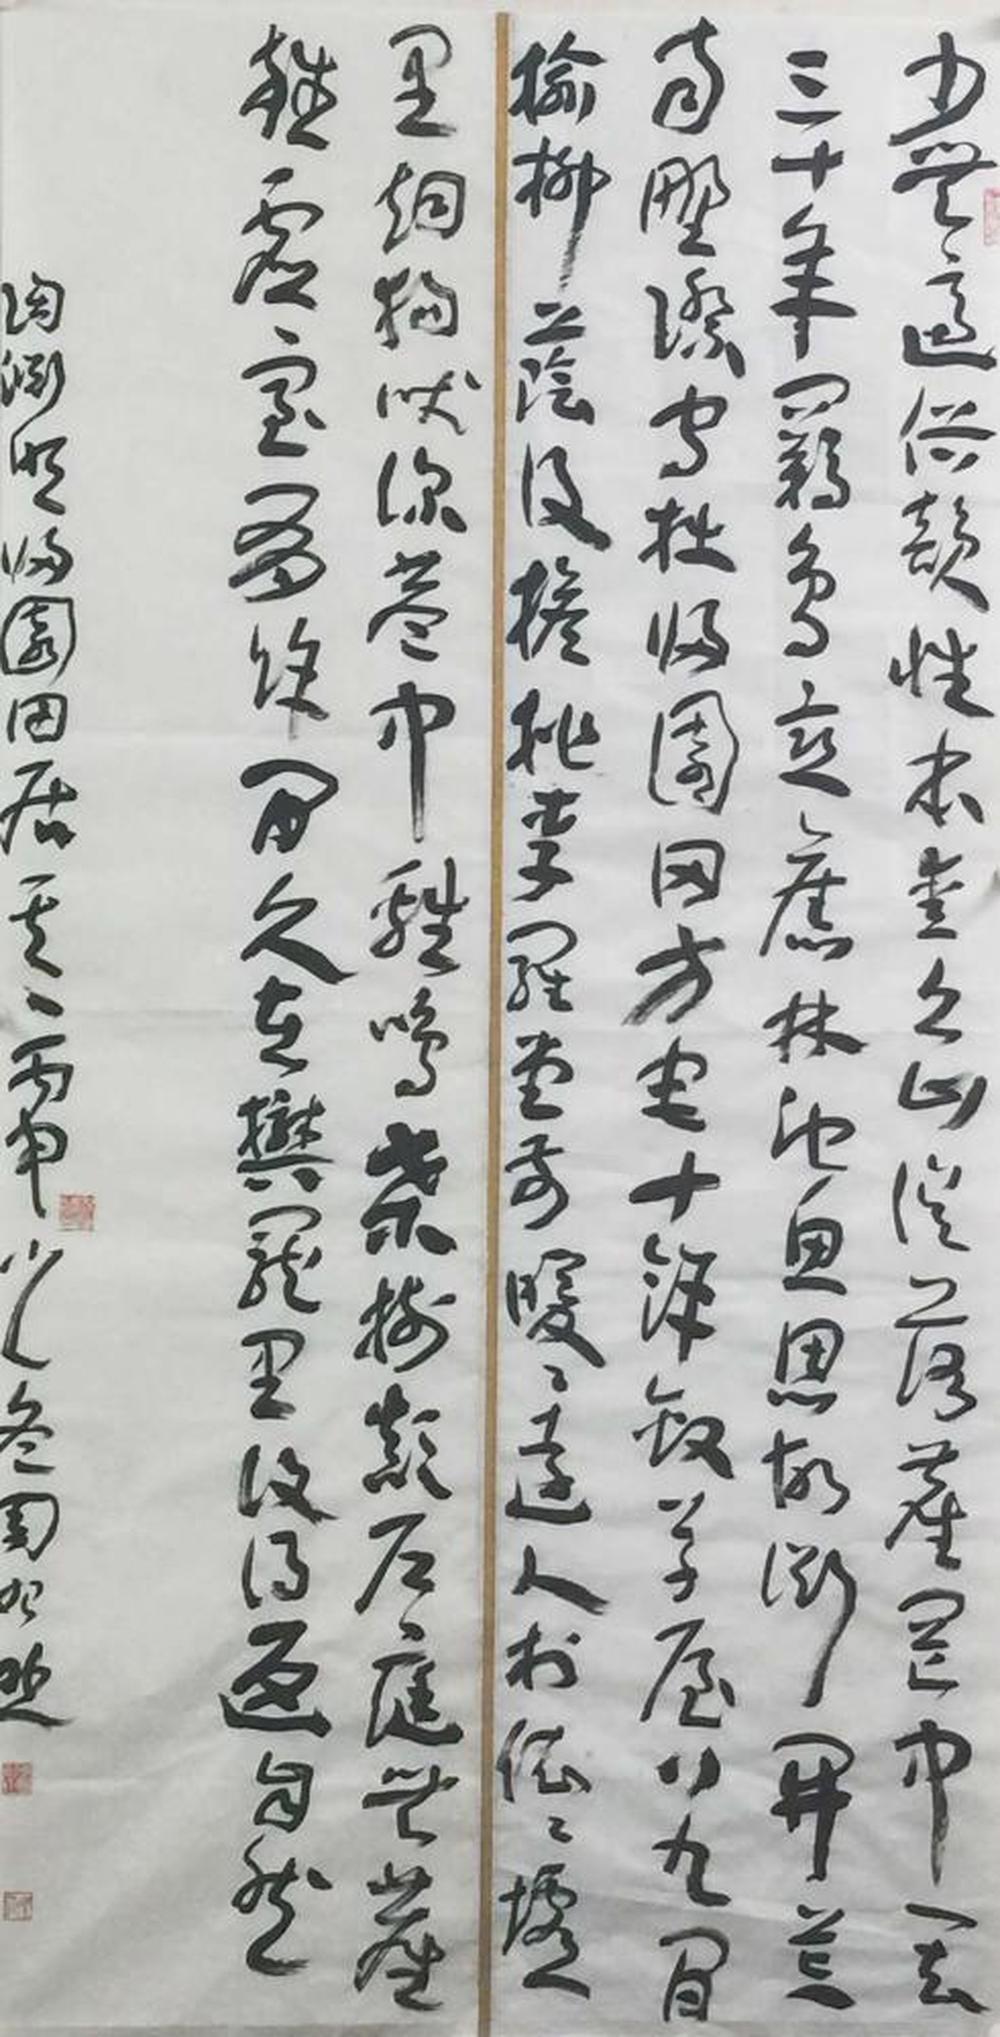 少無適俗韻性本愛丘山誤落塵罔中一去
三十年羈鳥戀舊林池魚思故淵開荒
南野際守拙歸園田方宅十餘畝草屋八九間
榆柳蔭後檐桃李羅堂前暧〻遠人村依〻墟
里烟狗吠深巷中雞鳴桑樹顛戶庭無塵
雜虛室有餘閒久在樊籠里復得返自然
陶淵明歸園田居其一丙申